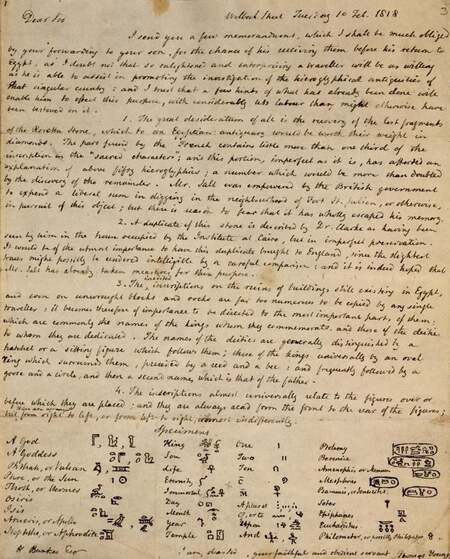 Dear Sir
Welbeck Street Tuesday 10 Feb. 1818
3
I send you a few memorandums, which I shall be much obliged
by your forwarding to your son, for the chance of his receiving them before his return to
Egypt, as I doubt not that so enlightened and enterprising a traveller will be as willing
as he is able to assist in promoting the investigation of the hieroglyphical antiquities of
that singular country: and I trust that a few hints of what has already been done will
enable him to effect this purpose, with considerably less labour than might otherwise have
been bestowed on it.
1. The great desideratum of all is the recovery of the lost fragments
of the Rosetta stone, which to an Egyptian antiquary would be worth their weight in
diamonds. The part found by the French contains little more than one third of the
inscription in the "sacred characters"; and this portion, imperfect as it is, has afforded an
explanation of above fifty hieroglyphics; a number which would be more than doubled
by the discovery of the remainder. Mr. Salt was empowered by the British government
to expend a liberal sum in digging in the neighbourhood of Fort St. Julien, or otherwise,
in pursuit of this object; but there is reason to fear that it has wholly escaped his memory.
2. A duplicate of this stone is described by Dr. Clarke as having been
seen by him in the house occupied by the Institute at Cairo, but in imperfect preservation.
It would be of the utmost importance to have this duplicate brought to England, since the slightest
traces might possibly be rendered intelligible by a careful comparison; and it is indeed hoped that
Mr. Salt has already taken measures for this purpose.
3. The inscriptions on the ruins of buildings still existing in Egypt,
and even on unwrought blocks and rocks are far too numerous to be copied by any single
traveller; it becomes therefore of importance to be directed to the most important parts of them,
which are commonly the names of the kings whom they commemorate, and those of the deities
to whom they are dedicated. The names of the deities are generally distinguished by a
hatchet or a sitting figure which follows them; those of the kings universally by an oval
ring which surrounds them, preceded by a reed and a bee: and frequently followed by a
goose and a circle, and then a second name, which is that of the father.
4. The inscriptions almost universally relate to the figures over or
before which they are placed; and they are always read from the front to the rear of the figures;
but from right to left, or from left to right, indifferently.
Specimens
A God King One Ptolemy
A Goddess Son Two Berenice
Phthah, or Vulcan Life Ten
Phre, or the Sun Eternity
Thoth, or Hermes Immortal
Osiris Day A plural
Isis Month Epiphanes
Arueris, or Apollo Year Upon
Nephthe, or Aphrodite Temple And
W. Bankes Esqr I am, dear Sir, your faithful and obedient servant Thomas Young